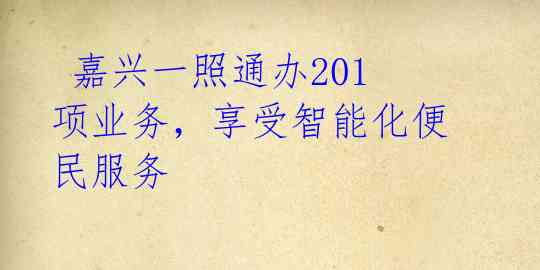 嘉兴一照通办201
项业务，享受智能化便
民服务